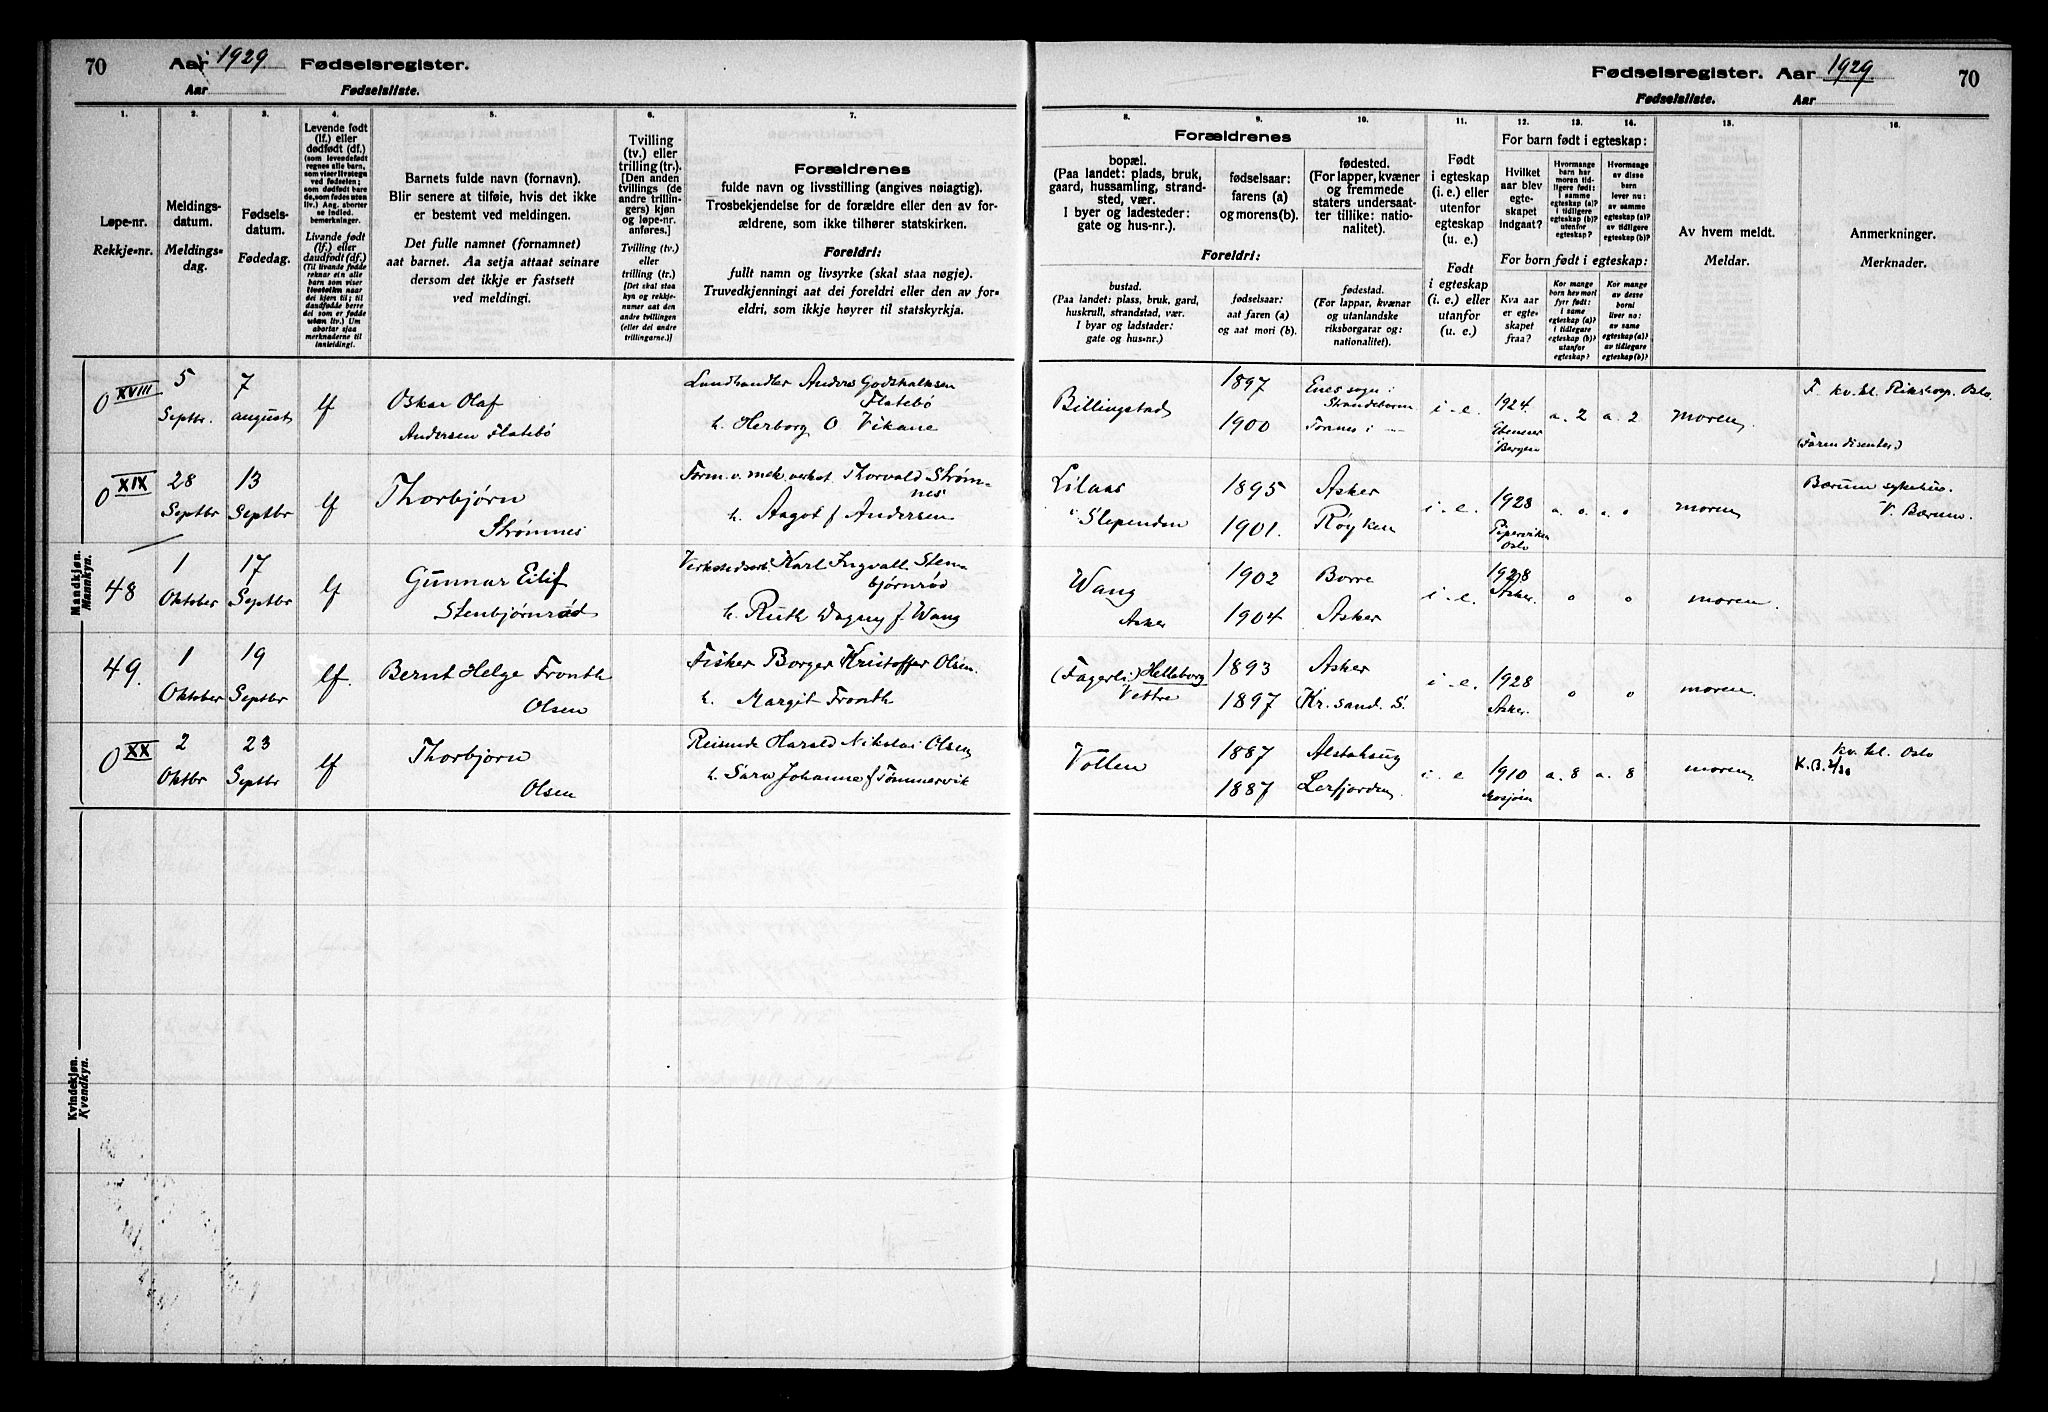 70 Aar 1929 Fødselsregister.
Aar Fødselsliste.
Fødselsregister. Aar 1929. 70
Fødselsliste. Aar
1.
Løpe-nr.
Rekkje-nr.
2.
Meldings-
datum.
Meldings-
dag.
3.
Fødsels-
datum.
Fødedag.
4.
Levende født
(lf.) eller
dødfødt (df.)
(som levendefødt
regnes alle barn,
som viser livstegn
ved fødselen;
som dødfødt bare
de, som fødes uten
liv.) Ang. aborter
se indled.
bemerkninger.
Livande født
(lf.) eller
daudfødt (df.)
(Til livande fødde
reknar ein alle
barn som viser
livsteikn naar
dei kjem til; til
daudfødde berre
dei som er fødde
utan liv.) Um
abortar sjaa
merknaderne til
innleiding!.
5.
Barnets fulde navn (fornavn).
Blir senere at tilføie, hvis det ikke
er bestemt ved meldingen.
Det fulle namnet (fornamnet)
aat barnet. Aa setja attaat seinare
dersom det ikkje er fastsett
ved meldingi.
6.
Tvilling
(tv.) eller
trilling (tr.).
[Den anden
tvillings (de
andre trillin-
gers) kjøn
og løpe-nr.
anføres.]
Tvilling (tv.)
eller
trilling (tr.)
[Det skal staa
kyn og rekkje-
numer aat den
andre tvillingen
(eller dei andre
trillingarne.)]
7.
Forældrenes
fulde navn og livsstilling (angives nøiagtig).
Trosbekjendelse for de forældre eller den av for-
ældrene, som ikke tilhører statskirken.
Foreldri:
fullt namn og livsyrke (skal staa nøgje).
Truvedkjenningi aat dei foreldri eller den av for-
eldri, som ikkje høyrer til statskyrkja.
8.
Forældrenes
bopæl.
(Paa landet: plads, bruk,
gaard, hussamling, strand-
sted, vær.
I byer og ladesteder:
gate og hus-nr.).
Foreldri:
bustad.
(Paa landet: plass, bruk, gard,
huskrull, strandstad, vær.
I byar og ladstader:
gate og hus-nr.)
9.
fødselsaar:
farens (a)
og morens (b).
fødselsaar:
aat faren (a)
og aat mori (b).
10.
fødested.
(For lapper, kvæner
og fremmede
staters undersaat-
ter tillike: natio-
nalitet).
fødestad.
(For lappar, kvænar
og utanlandske
riksborgarar og:
nationalitet).
11.
Født
i egteskap
(i. e.) eller
utenfor
egteskap
(u. e.)
Født
i egteskap
(i. e.) eller
utanfor
(u. e.)
For barn født i egteskap:
12.
Hvilket
aar blev
egte-
skapet
indgaat?
For born født i egteskap:
Kva aar
er egte-
skapet
fraa?
13.
Hvormange
barn har
moren tid-
ligere født:
i samme
egteskap (a)?
i tidligere
egteskap (b)?
utenfor
egteskap?
Kor mange
born hev mori
fyrr født:
i same
egteskap (a)?
i tidlegare
egteskap (b)?
utanfor
egteskap?
14.
Hvormange
av disse
barn
lever nu:
av samme
egteskap (a)?
av tidligere
egteskap (b)?
Kor mange
av desse
borni
liver no:
av same
egteskap (a)?
av tidlegare
egteskap (b)?
15.
Av hvem meldt.
Meldar.
16.
Anmerkninger.
Merknader.
Mandkjøn.
Mannkyn.
0 XVIII 5 Septbr. 7 august lf Oskar Olaf
Andersen Flatebø
Landhandler Anders Godskalksen
Flatebø
h. Herborg O Vikane
Billingstad 1897 1900 Enes sogn i
Strandebarm
i. e. 1924. Ebeneser
i Bergen a. 2 a. 2 moren.
F. kv. kl. Rikshosp. Oslo
0 XIX 28 Septbr 13 Septbr lf Thorbjørn
Strømnes
Form. v. mek. verkst. Thorvald Strøm-
nes
h. Aagot f Andersen
i Slependen 1895 Asker
1901. Røyken
i. e. 1928 Pipervikken
Oslo a. o. a. o moren
Bærum sykehus.
V. Bærum.
48 1 Oktober 17 Septbr lf Gunnar Eilif
Stenbjørnrød
Verkstedsarb. Karl Ingvall Sten-
bjørnrød
h. Ruth Dagny f Wang
Wang
Asker 1902 Borre
1904 Asker
i. e. 1928 Asker. o o moren.
49. 1 Oktober 19 Septbr lf. Bernt Helge Fronth
Olsen
Fisker Borger Kristoffer Olsen.
h. Margit Fronth
(Fagerli) Helleborg
Vettre 1893 Asker
1897 Kr.sand. S.
i. e. 1928 Asker. o o moren.
0 XX 2 Oktbr 23 Septbr lf Thorbjørn
Olsen
Reisende Harald Nikolai Olsen
h. Sara Johanne f Tømmervik
Vollen 1887 Alstahaug
1887 Leirfjorden.
i. e 1910 Mosjøen a. 8 a. 8 moren
kv. kl. Oslo
Kvindekjøn.
Kvendkyn.